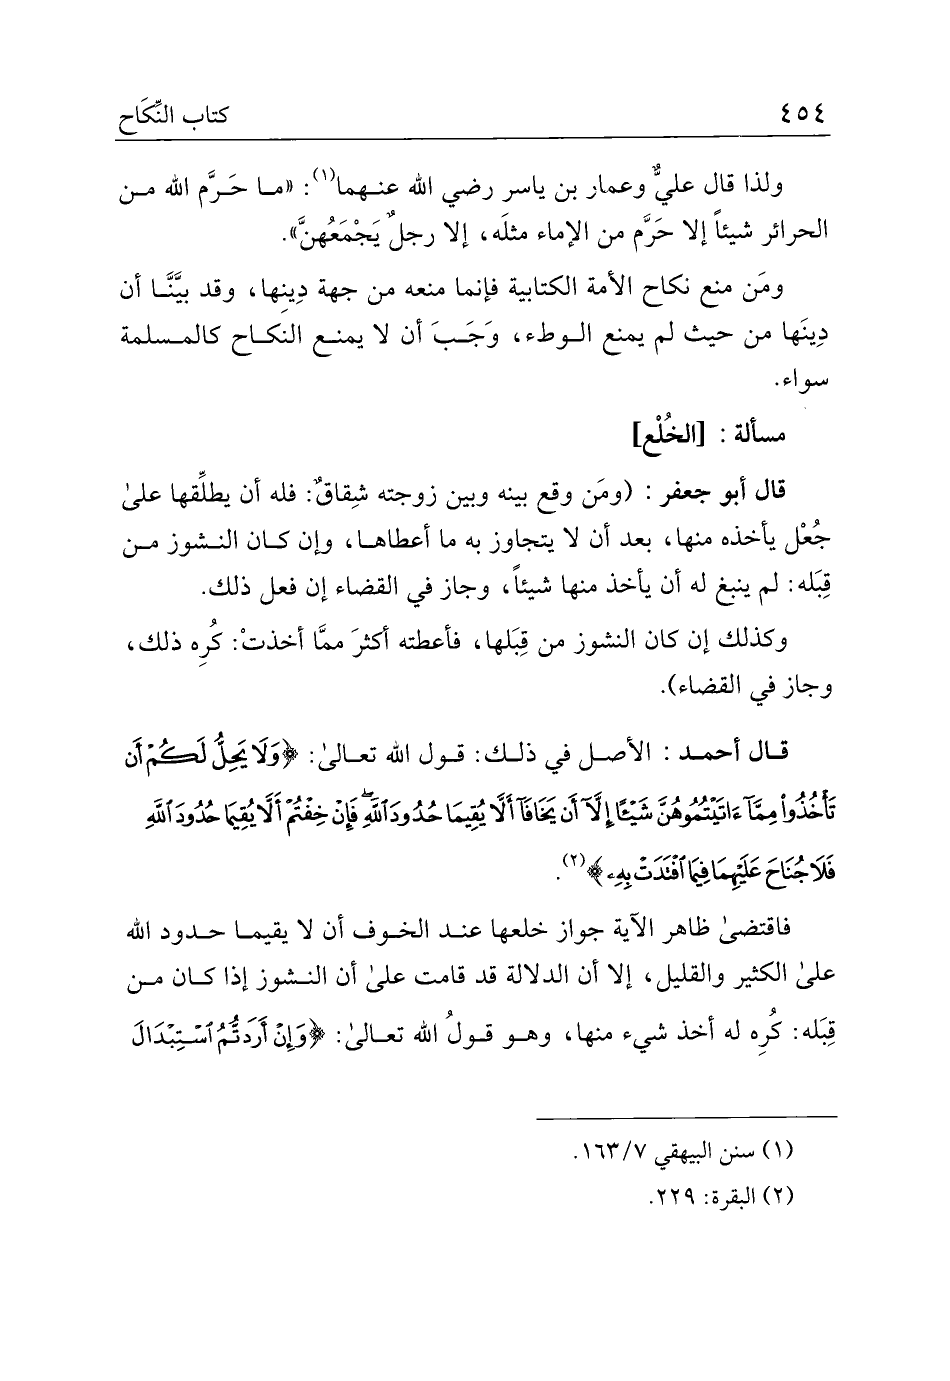 ٤٥٤ كتاب النِّكَاح
ولذا قال عليٌّ وعمار بن ياسر رضي الله عنهما(١): «ما حَرَّم الله من
الحرائر شيئاً إلا حَرَّم من الإماء مثلَه، إلا رجلٌ يَجْمَعُهنَّ».
ومَن منع نكاح الأمة الكتابية فإنما منعه من جهة دِينِها، وقد بيَّنَّا أن
دِينَها من حيث لم يمنع الوطء، وَجَبَ أن لا يمنع النكاح كالمسلمة
سواء.
مسألة : [الخُلْع]
قال أبو جعفر : (ومَن وقع بينه وبين زوجته شِقاقٌ: فله أن يطلِّقها علىٰ
جُعْل يأخذه منها، بعد أن لا يتجاوز به ما أعطاها، وإن كان النشوز من
قِبَله: لم ينبغ له أن يأخذ منها شيئاً، وجاز في القضاء إن فعل ذلك.
وكذلك إن كان النشوز من قِبَلها، فأعطته أكثرَ ممَّا أخذتْ: كُرِه ذلك،
وجاز في القضاء).
قال أحمد : الأصل في ذلك: قول الله تعالىٰ: ﴿وَلَا يَحِلُّ لَكُمْ أَن
تَأْخُذُوا۟ مِمَّآ ءَاتَيْتُمُوهُنَّ شَيْـًٔا إِلَّآ أَن يَخَافَآ أَلَّا يُقِيمَا حُدُودَ ٱللَّهِ ۖ فَإِنْ خِفْتُمْ أَلَّا يُقِيمَا حُدُودَ ٱللَّهِ
فَلَا جُنَاحَ عَلَيْهِمَا فِيمَا ٱفْتَدَتْ بِهِۦ﴾(٢).
فاقتضىٰ ظاهر الآية جواز خلعها عند الخوف أن لا يقيما حدود الله
علىٰ الكثير والقليل، إلا أن الدلالة قد قامت علىٰ أن النشوز إذا كان من
قِبَله: كُرِه له أخذ شيء منها، وهو قولُ الله تعالىٰ: ﴿وَإِنْ أَرَدتُّمُ ٱسْتِبْدَالَ
(١) سنن البيهقي ١٦٣/٧.
(٢) البقرة: ٢٢٩.